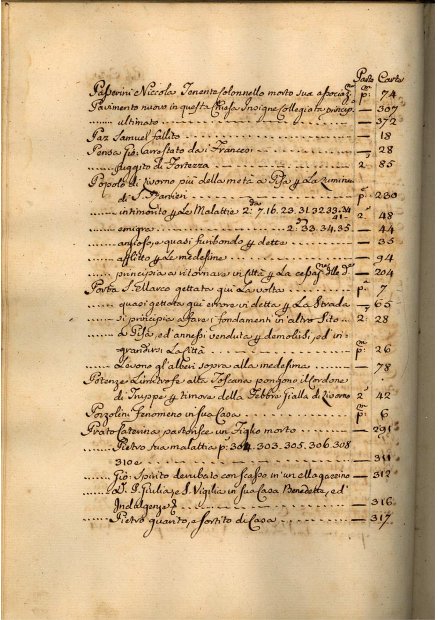 Parte Carte
Passerini Niccola Tenente Colonnello morto sua associaz. p.ª 74
Pavimento nuovo in questa Chiesa Insigne Collegiata princip. — 307
ultimato — 372
Paz Samuel fallito — 18
Pensa Gio: arrestato da i Francesi — 28
fuggito di Fortezza 2.ª 85
Popolo di Livorno più della metà a Pisa p La Lumina
di S. Ranieri p.ª 230
intimorito p Le Malattie 2.ª 7. 16. 23. 31. 32. 33. 34 2. 48
41
emigra 2.ª 33. 34. 35 — 44
ansioso, e quasi furibondo p dette — 35
afflitto p Le medesime — 94
principia a ritornare in Città p La cessaz.ne — 204
Porta S. Marco gettata qui La volta p.ª 7
quasi gettata qui errore vi detta p La Strada — 65
Si principia a fare i fondamenti in altro Sito 2. 28
a Pisa, ed annessi venduta p demolirsi, ed in-
grandirsi La Città p.ª 26
Levono gl'alberi sopra alla medesima — 78
Potenze Limitrofe alla Toscana pongono il Cordone
di Truppe p timore della Febbre Gialla di Livorno 2. 42
Porzolini Fenomeno in sua Casa p.ª 6
Prato Caterina partorisce un Figlio morto — 291
Pietro sua malattia p. 304. 303. 305. 306. 308
310 e — 311
Gio: Spirito derubato con scasso in un Magazzino — 312
S. Vigilia in sua Casa Benedetta, ed
Indulgenze — 316
Pietro guarito, e sortito di Casa — 317